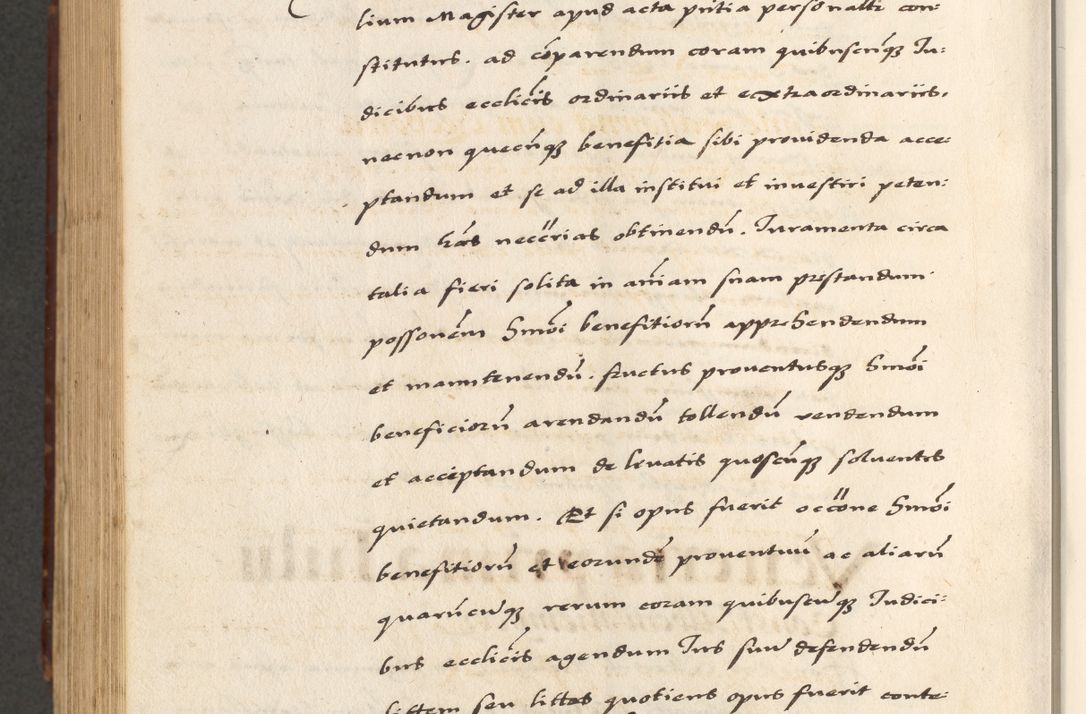 lium Magister apud acta pntia personalr con-
stitutus. ad cōparendum coram quibuscūqꝫ Iu:
dicibus eccliĉis ordinariis et extraordinariis,
necnon quecūqꝫ benefitia sibi providenda acce-
ptandum et se ad illa institui et investiri peten:
dum lrās necc̄rias obtinendū. Iuramenta circa
talia fieri solita in aīam suam prestandum
possonēm hmōi benefitiorū apprehendendum
et manutenendū. fructus proventusqꝫ hmōi
beneficiorū arendandū tollendū vendendum
et acceptandum de levatis quoscūqꝫ solventes
quietandum. Et si opus fuerit occōne hmōi
benefitiorū et eorundē proventuū ac aliarū
quarūcūqꝫ rerum coram quibuscūqꝫ Iudici:
bus eccliĉis agendum Ius suū defendendū
littem seu littes quotiens opus fuerit conte-